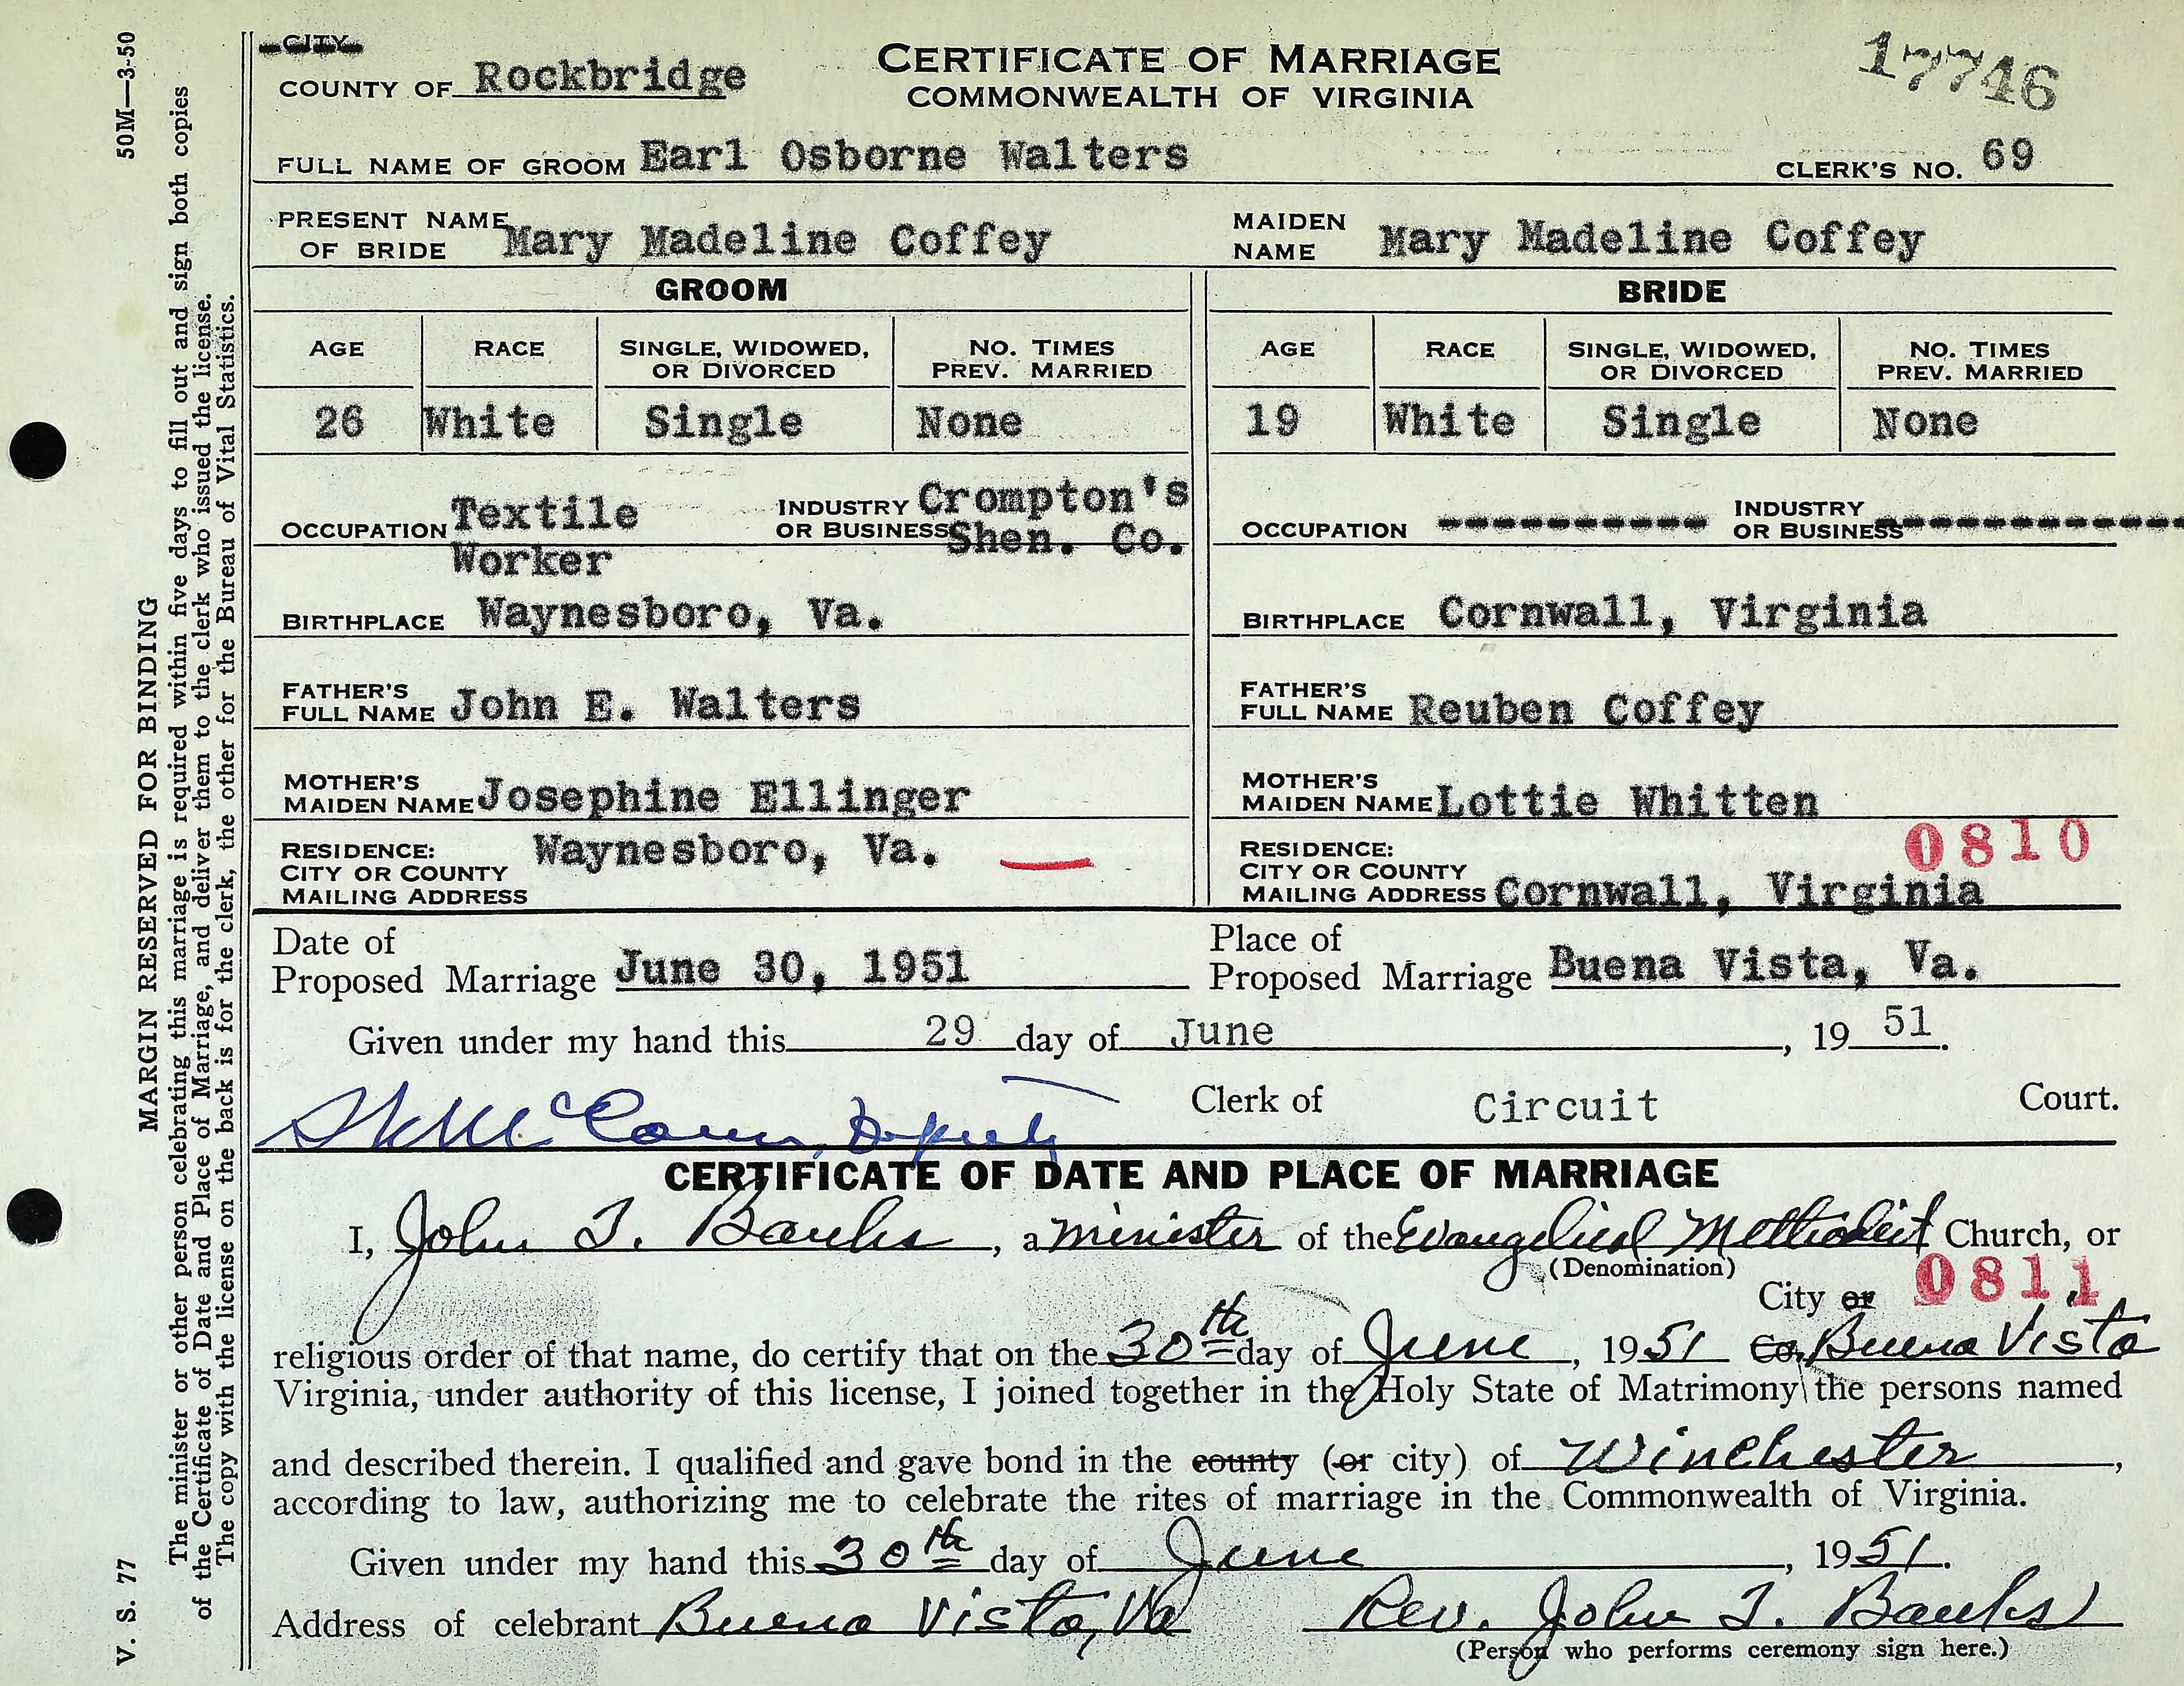 CITY
COUNTY OF Rockbridge
CERTIFICATE OF MARRIAGE
COMMONWEALTH OF VIRGINIA
17746
FULL NAME OF GROOM Earl Osborne Walters CLERK'S NO. 69
PRESENT NAME OF BRIDE Mary Madeline Coffey MAIDEN NAME Mary Madeline Coffey
GROOM BRIDE
AGE RACE SINGLE, WIDOWED, OR DIVORCED NO. TIMES PREV. MARRIED AGE RACE SINGLE, WIDOWED, OR DIVORCED NO. TIMES PREV. MARRIED
26 White Single None 19 White Single None
OCCUPATION Textile Worker INDUSTRY OR BUSINESS Crompton's Shen. Co. OCCUPATION ---------- INDUSTRY OR BUSINESS ------------
BIRTHPLACE Waynesboro, Va. BIRTHPLACE Cornwall, Virginia
FATHER'S FULL NAME John E. Walters FATHER'S FULL NAME Reuben Coffey
MOTHER'S MAIDEN NAME Josephine Ellinger MOTHER'S MAIDEN NAME Lottie Whitten
RESIDENCE: CITY OR COUNTY MAILING ADDRESS Waynesboro, Va. RESIDENCE: CITY OR COUNTY MAILING ADDRESS Cornwall, Virginia 0810
Date of Proposed Marriage June 30, 1951 Place of Proposed Marriage Buena Vista, Va.
Given under my hand this 29 day of June, 19 51.
Deputy Clerk of Circuit Court.
CERTIFICATE OF DATE AND PLACE OF MARRIAGE
I, John T. Banks, a minister of the Evangelical Methodist Church, or
(Denomination)
City or 0811
religious order of that name, do certify that on the 30th day of June, 1951 Co. Buena Vista
Virginia, under authority of this license, I joined together in the Holy State of Matrimony the persons named
and described therein. I qualified and gave bond in the county (or city) of Winchester,
according to law, authorizing me to celebrate the rites of marriage in the Commonwealth of Virginia.
Given under my hand this 30th day of June, 1951.
Address of celebrant Buena Vista, Va Rev. John T. Banks
(Person who performs ceremony sign here.)
50M—3-50
MARGIN RESERVED FOR BINDING
V. S. 77
The minister or other person celebrating this marriage is required within five days to fill out and sign both copies
of the Certificate of Date and Place of Marriage, and deliver them to the clerk who issued the license.
The copy with the license on the back is for the clerk, the other for the Bureau of Vital Statistics.